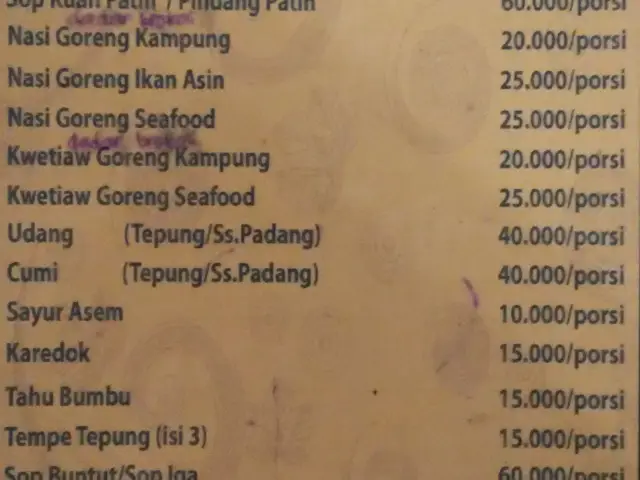 Sop Kuah Patin / Pindang Patin 60.000/porsi
Nasi Goreng Kampung 20.000/porsi
Nasi Goreng Ikan Asin 25.000/porsi
Nasi Goreng Seafood 25.000/porsi
Kwetiaw Goreng Kampung 20.000/porsi
Kwetiaw Goreng Seafood 25.000/porsi
Udang (Tepung/Ss.Padang) 40.000/porsi
Cumi (Tepung/Ss.Padang) 40.000/porsi
Sayur Asem 10.000/porsi
Karedok 15.000/porsi
Tahu Bumbu 15.000/porsi
Tempe Tepung (isi 3) 15.000/porsi
Sop Buntut/Sop Iga 60.000/porsi